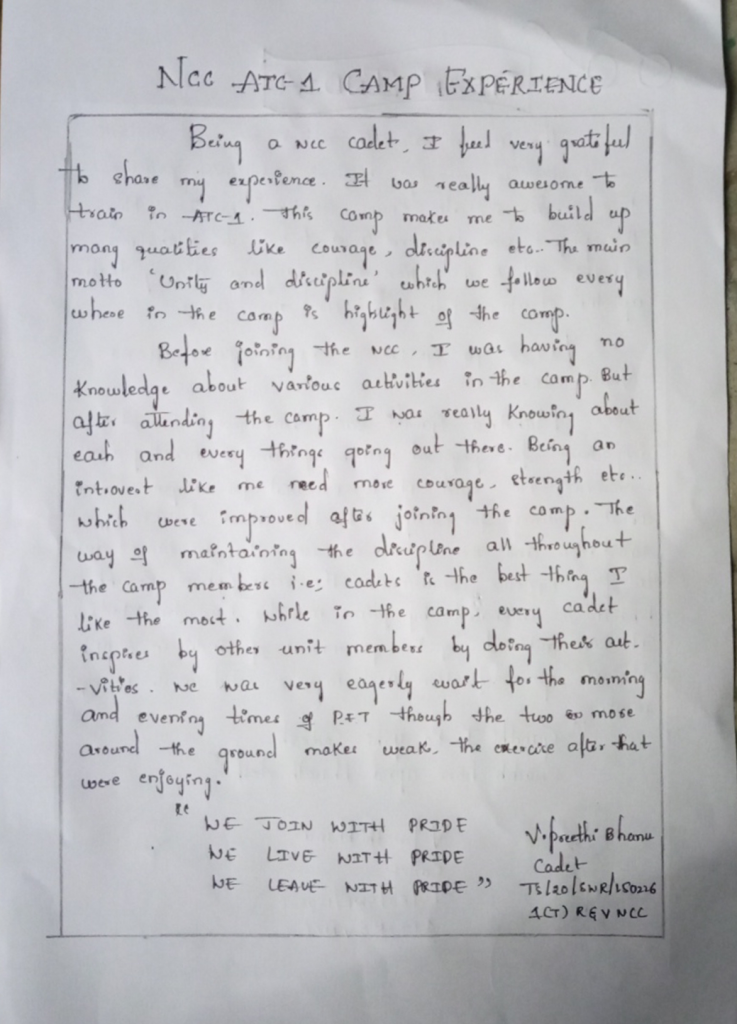 NCC ATC-1 CAMP EXPERIENCE
Being a NCC cadet, I feel very grateful
to share my experience. It was really awesome to
train in ATC-1. This camp makes me to build up
many qualities like courage, discipline etc.. The main
motto 'Unity and discipline' which we follow every
where in the camp is highlight of the camp.
Before joining the NCC, I was having no
knowledge about various activities in the camp. But
after attending the camp. I was really knowing about
each and every things going out there. Being an
introvert like me need more courage, strength etc..
which were improved after joining the camp. The
way of maintaining the discipline all throughout
the camp members i.e; cadets is the best thing I
like the most. While in the camp, every cadet
inspires by other unit members by doing their act-
-vities. We was very eagerly wait for the morning
and evening times of P.F.T though the two or more
around the ground makes weak, the exercise after that
were enjoying.
"WE JOIN WITH PRIDE
WE LIVE WITH PRIDE
WE LEAVE WITH PRIDE"
V.preethi Bhanu
Cadet
TS/20/SWR/150226
1(T) R&V NCC